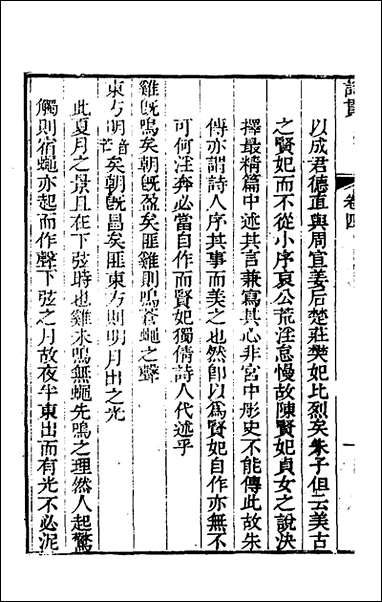 詩貫
卷四
一
以成君德直與周宣姜后楚莊樊妃比烈矣朱子但云美古
之賢妃而不從小序哀公荒淫怠慢故陳賢妃貞女之說決
擇最精篇中述其言兼寫其心非宮中彤史不能傳此故朱
傳亦謂詩人序其事而美之也然卽以爲賢妃自作亦無不
可何淫奔必當自作而賢妃獨倩詩人代述乎
雞旣鳴矣朝旣盈矣匪雞則鳴蒼蠅之聲
東方明矣朝旣昌矣匪東方則明月出之光
此夏月之景且在下弦時也雞未鳴無蠅先鳴之理然人起驚
觸則宿蠅亦起而作聲下弦之月故夜半東出而有光不必泥